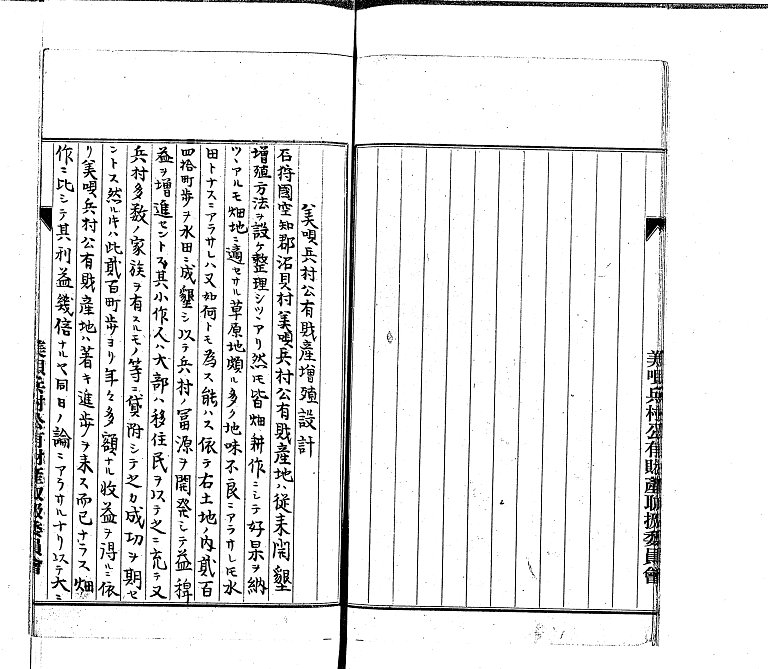 美唄兵村公有財產取扱委員會
美唄兵村公有財產增殖設計
石狩國空知郡沼貝村美唄兵村公有財產地ハ從来開墾
增殖方法ヲ設ケ整理シツヽアリ然ルモ皆畑耕作ニシテ好果ヲ納
ツヽアルモ畑地ニ適セサル草原地頗ル多ク地味不良ニアラサレ𪜈水
田トナスニアラサレハ又如何トモ為ス能ハス依テ右土地ノ内貳百
四拾町歩ヲ水田ニ成墾シ以テ兵村ノ冨源ヲ開発シテ益稗
益ヲ增進セントス其小作人ハ大部ハ移住民ヲ以テ之ニ充テ又
兵村多数ノ家族ヲ有スルモノ等ニ貸附シテ之カ成功ヲ期セ
ントス然ルキハ此貳百町歩ヨリ年々多額ナル收益ヲ得ルニ依
リ美唄兵村公有財產地ハ著キ進歩ヲ来ス而已ナラス畑
作ニ比シテ其利益幾倍ナルヤ同日ノ論ニアラサルナリ以テ大ニ
美唄兵村公有財產取扱委員會